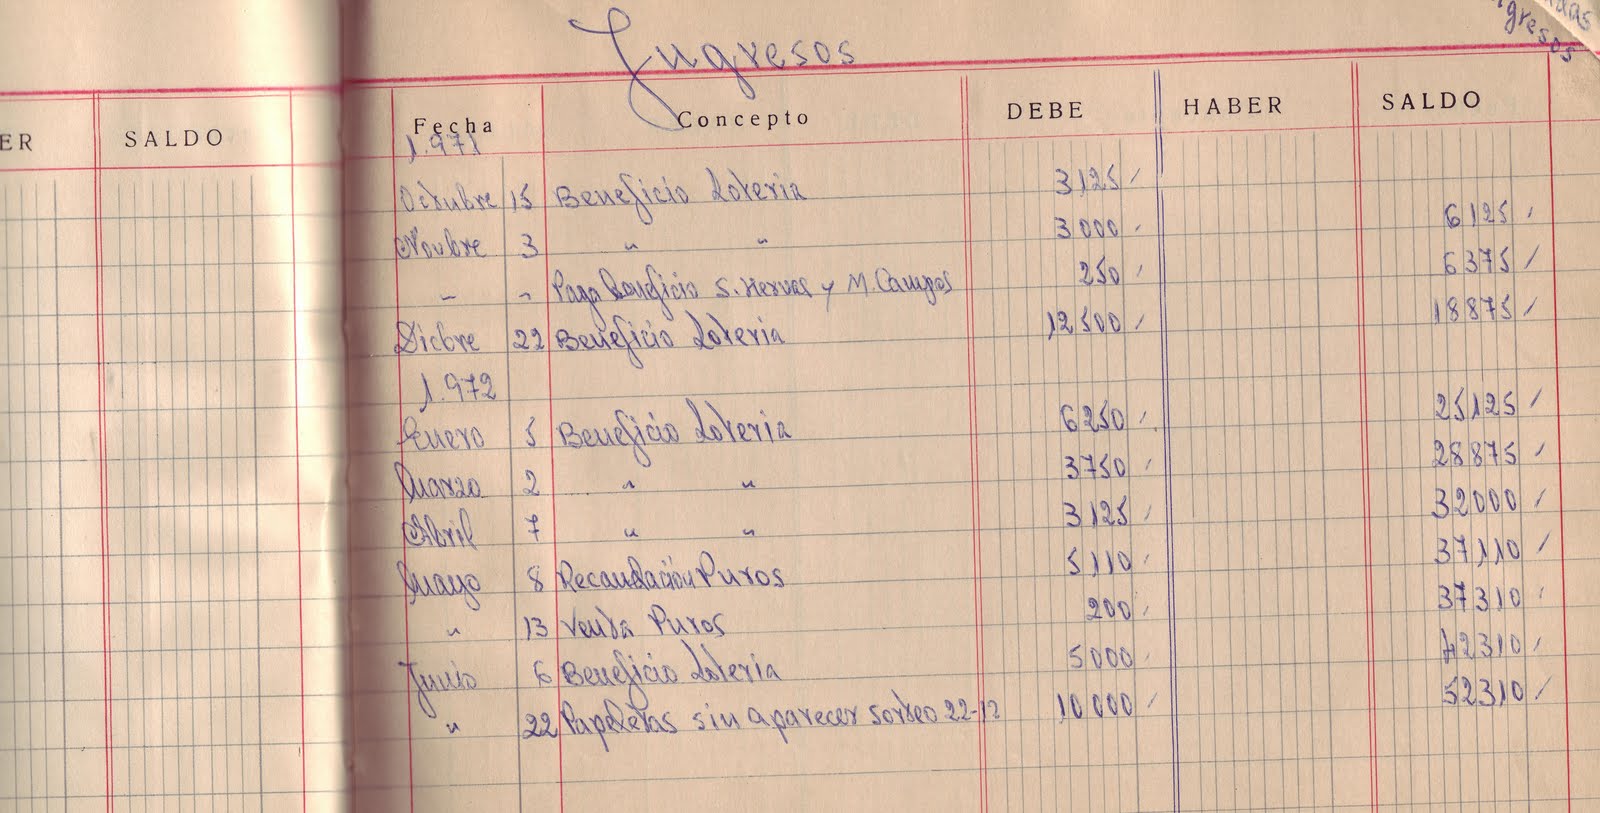 Ingresos
ngresos
ER SALDO Fecha Concepto DEBE HABER SALDO
1.971
Octubre 15 Beneficio Loteria 3125
Novbre 3 " " 3000 6125
" " Paga Beneficio S. Hervas y M. Campos 250 6375
Dicbre 22 Beneficio Loteria 12500 18875
1.972
Enero 5 Beneficio Loteria 6250 25125
Marzo 2 " " 3750 28875
Abril 7 " " 3125 32000
Mayo 8 Recaudación Puros 5110 37110
" 13 Venta Puros 200 37310
Junio 6 Beneficio Loteria 5000 42310
" 22 Papeletas sin aparecer sorteo 22-12 10000 52310